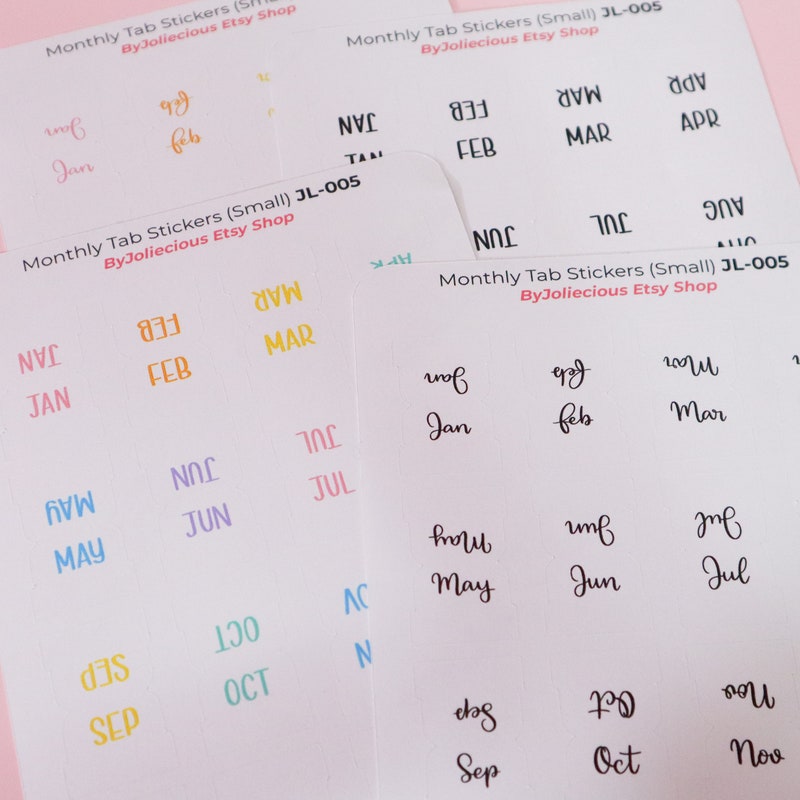 Monthly Tab Stickers (Small)
ByJoliecious Etsy Shop
Jan feb
Jan feb
Monthly Tab Stickers (Small) JL-005
ByJoliecious Etsy Shop
JAN FEB MAR APR
JAN FEB MAR APR
JUN JUL AUG
AUG
Monthly Tab Stickers (Small) JL-005
ByJoliecious Etsy Shop
JAN FEB MAR APR
JAN FEB MAR
MAY JUN JUL
MAY JUN JUL
SEP OCT
SEP OCT
Monthly Tab Stickers (Small) JL-005
ByJoliecious Etsy Shop
Jan feb Mar
Jan feb Mar
May Jun Jul
May Jun Jul
Sep Oct Nov
Sep Oct Nov